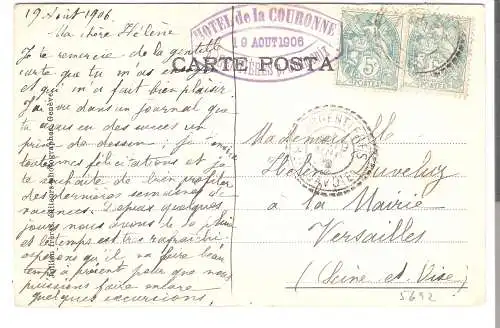 19 Août 1906.
Ma chère Hélène
Je te remercie de la gentille
carte que tu m'as envoyée
et qui m'a fait bien plaisir.
J'ai vu dans un journal que
tu avais eu des succès un
prix de dessin ; je
toutes mes félicitations et je
te souhaite de bien profiter
des dernières semaines de
vacances. Depuis quelques
jours nous avons de la pluie
et le temps est très rafraichi
espérons qu'il va faire beau
temps à présent pour que nous
puissions faire encore
quelques excursions.
HOTEL de la COURONNE
19 AOUT 1906
CARTE POSTA
5c
POSTES
5c
POSTES
ARGENTIERES
SAVOIE
Mademoiselle
Hélène Duveluz
à la Mairie
Versailles
(Seine et Oise)
5692
éditeurs photographes, Genève